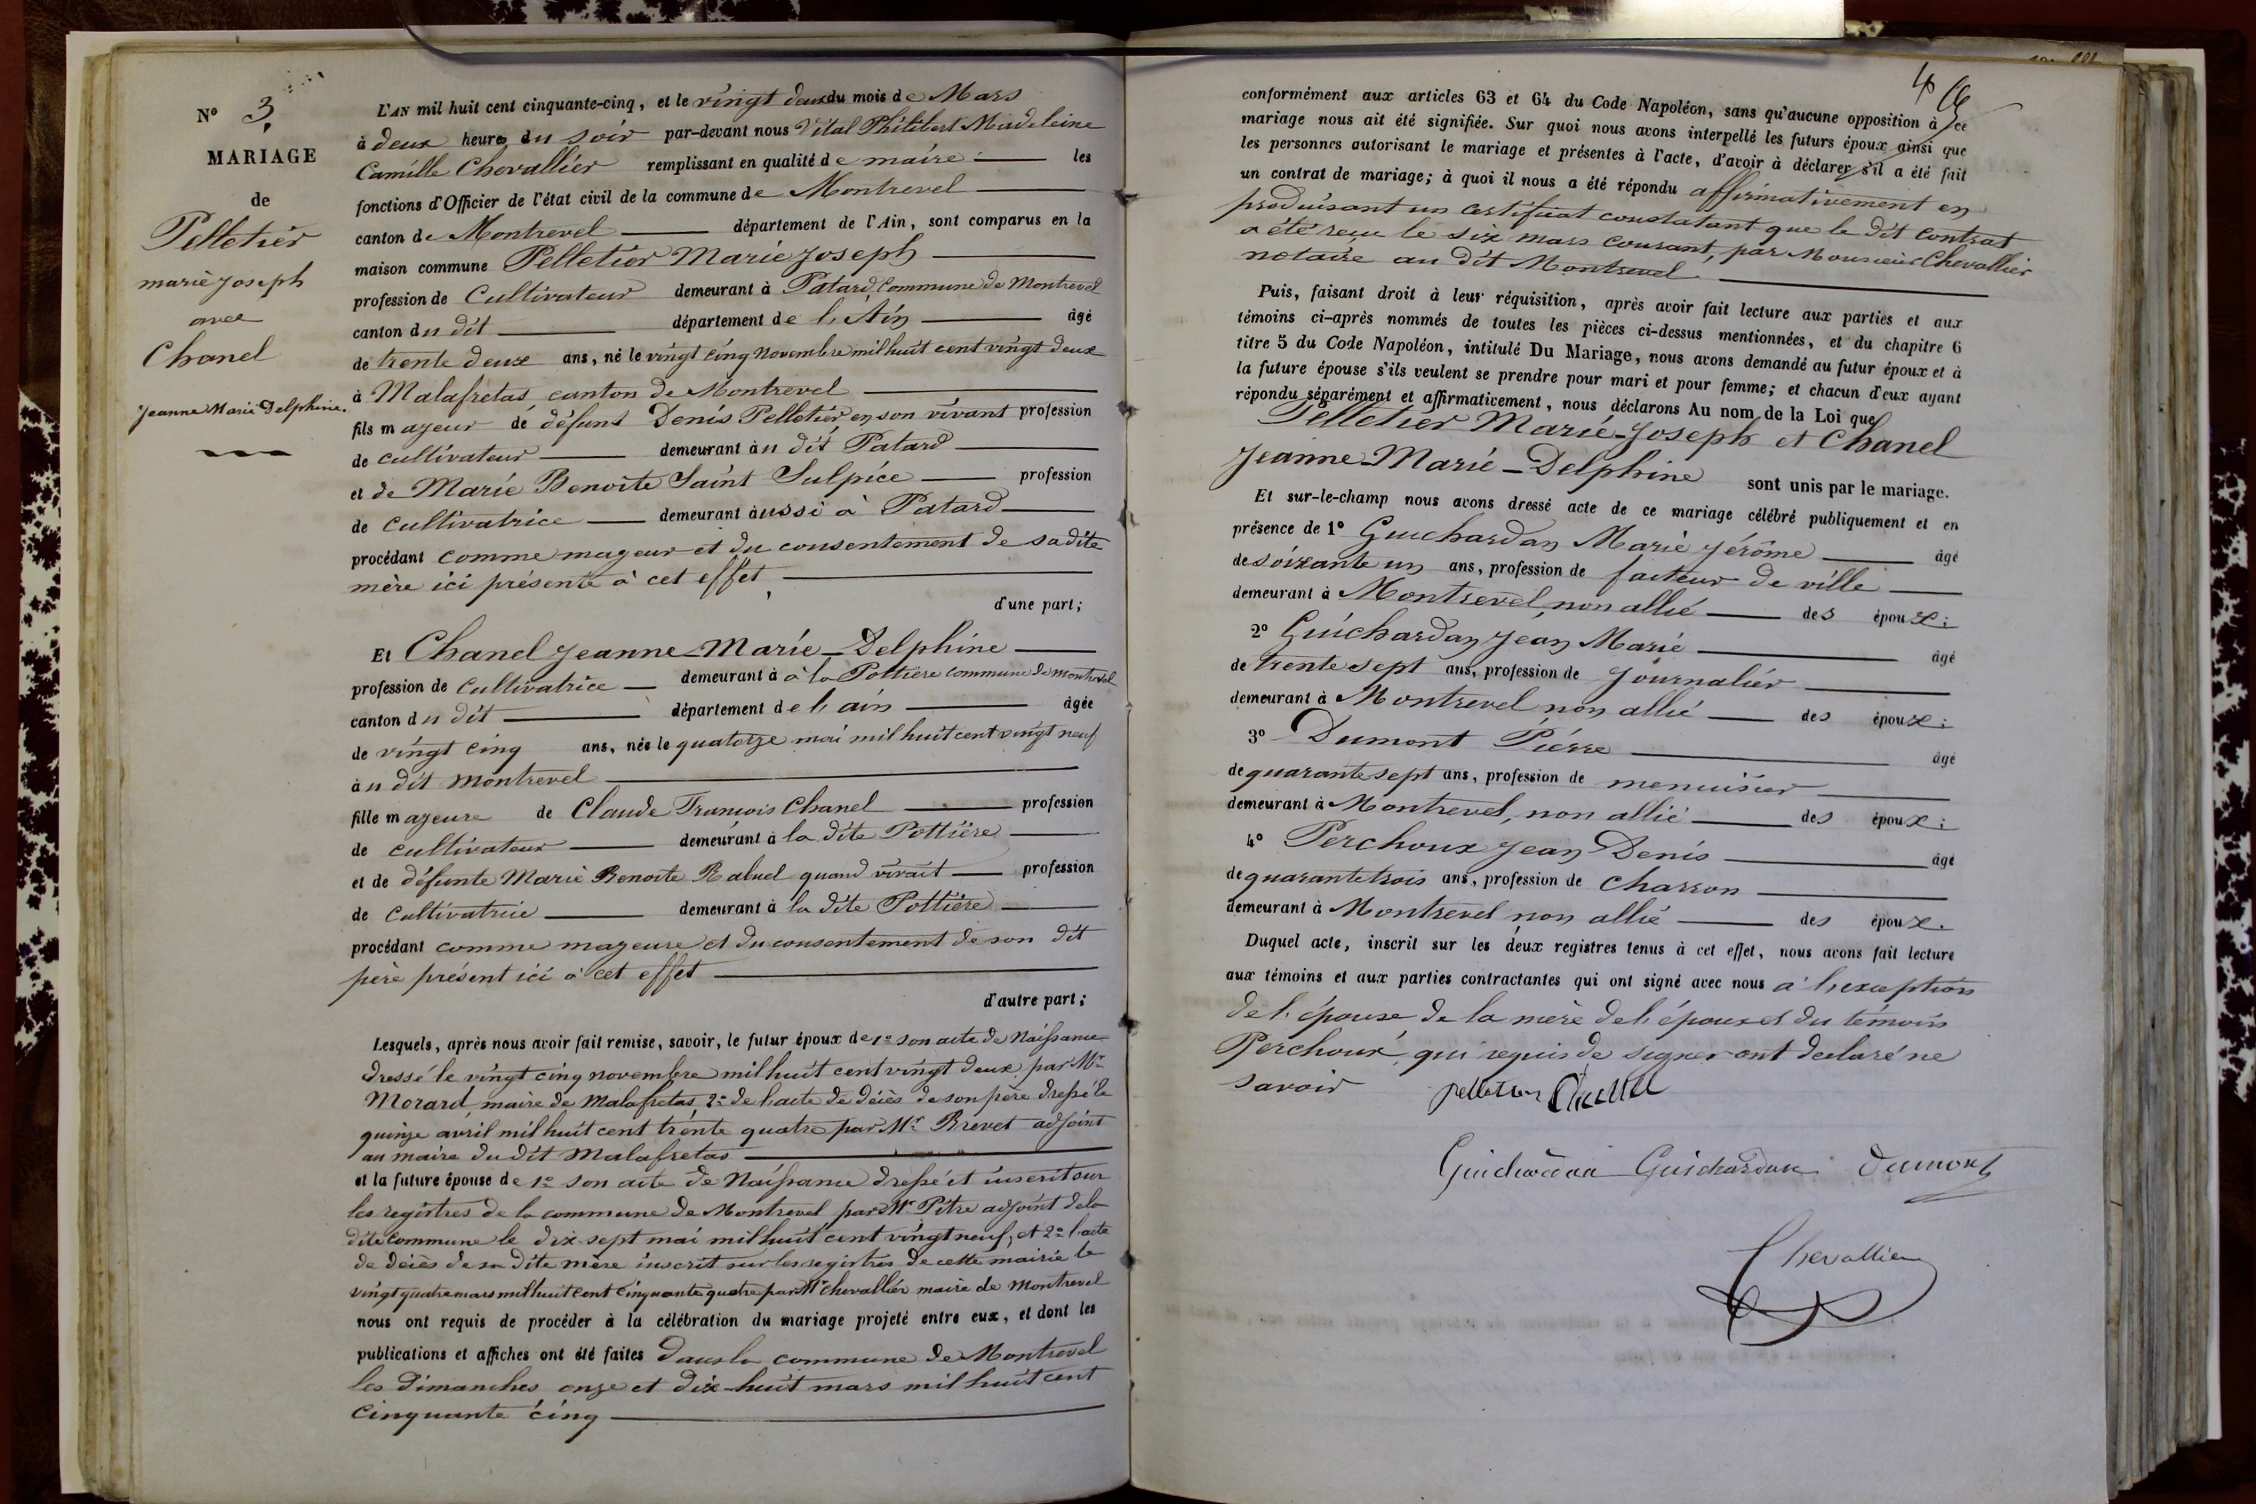 N° 3.
MARIAGE
de
Pelletier
marie Joseph
avec
Chanel
Jeanne Marie Delphine.
L'AN mil huit cent cinquante-cinq, et le vingt deux du mois de Mars
à deux heures du soir par-devant nous Vital Philibert Madeleine
Camille Chevallier remplissant en qualité de maire les
fonctions d'Officier de l'état civil de la commune de Montrevel
canton de Montrevel département de l'Ain, sont comparus en la
maison commune Pelletier Marie Joseph
profession de Cultivateur demeurant à Patard, Commune de Montrevel
canton du dit département de l'Ain âgé
de trente deux ans, né le vingt cinq Novembre mil huit cent vingt deux
à Malafretas canton de Montrevel
fils mageur de défunt Denis Pelletier, en son vivant profession
de cultivateur demeurant au dit Patard
et de Marie Benoite Saint Sulpice profession
de cultivatrice demeurant aussi à Patard
procédant comme mageur et du consentement de sa dite
mère ici présente à cet effet,
d'une part;
Et Chanel Jeanne-Marie-Delphine
profession de cultivatrice demeurant à à la Pottière commune de montrevel
canton du dit département de l'ain âgée
de vingt cinq ans, née le quatorze mai mil huit cent vingt neuf
au dit montrevel
fille mageure de Claude François Chanel profession
de cultivateur demeurant à la dite Pottière
et de défunte Marie Benoite Raluel quand vivait profession
de cultivatrice demeurant à la dite Pottière
procédant comme mageure et du consentement de son dit
père présent ici à cet effet
d'autre part;
Lesquels, après nous avoir fait remise, savoir, le futur époux de 1° son acte de Naissance
dressé le vingt cinq novembre mil huit cent vingt deux par Mr
Morard, maire de Malafretas, 2° de l'acte de décès de son père dressé le
quinze avril mil huit cent trente quatre par Mr Brevet adjoint
au maire du dit Malafretas
et la future épouse de 1° son acte de Naissance dressé et inscrit sur
les registres de la commune de Montrevel par Mr Pitre adjoint de la
dite Commune le dix-sept mai mil huit cent vingt neuf, et 2° l'acte
de décès de sa dite mère inscrit sur les registres de cette mairie le
vingt quatre mars mil huit cent cinquante quatre par Mr Chevallier maire de Montrevel
nous ont requis de procéder à la célébration du mariage projeté entre eux, et dont les
publications et affiches ont été faites dans la commune de Montrevel
les dimanches onze et dix-huit mars mil huit cent
cinquante cinq
4
conformément aux articles 63 et 64 du Code Napoléon, sans qu'aucune opposition à ce
mariage nous ait été signifiée. Sur quoi nous avons interpellé les futurs époux ainsi que
les personnes autorisant le mariage et présentes à l'acte, d'avoir à déclarer s'il a été fait
un contrat de mariage; à quoi il nous a été répondu affirmativement en
produisant un certificat constatant que le dit contrat
a été reçu le six mars courant, par Monsieur Chevallier
notaire au dit Montrevel.
Puis, faisant droit à leur réquisition, après avoir fait lecture aux parties et aux
témoins ci-après nommés de toutes les pièces ci-dessus mentionnées, et du chapitre 6
titre 5 du Code Napoléon, intitulé Du Mariage, nous avons demandé au futur époux et à
la future épouse s'ils veulent se prendre pour mari et pour femme; et chacun d'eux ayant
répondu séparément et affirmativement, nous déclarons Au nom de la Loi que
Pelletier Marie-Joseph et Chanel
Jeanne-Marie-Delphine sont unis par le mariage.
Et sur-le-champ nous avons dressé acte de ce mariage célébré publiquement et en
présence de 1° Guichardan Marie Jérôme âgé
de soixante un ans, profession de facteur de ville
demeurant à Montrevel, non allié des époux:
2° Guichardan Jean Marie âgé
de trente sept ans, profession de Journalier
demeurant à Montrevel non allié des époux:
3° Dumont Pierre âgé
de quarante sept ans, profession de menuisier
demeurant à Montrevel, non allié des époux:
4° Perchoux Jean Denis âgé
de quarante trois ans, profession de charron
demeurant à Montrevel non allié des époux.
Duquel acte, inscrit sur les deux registres tenus à cet effet, nous avons fait lecture
aux témoins et aux parties contractantes qui ont signé avec nous à l'exception
de l'épouse de la mère de l'époux et du témoin
Perchoux, qui requis de signer ont declaré ne
savoir
pelletier Chanel
Guichardan Guichardan Dumont
Chevallier